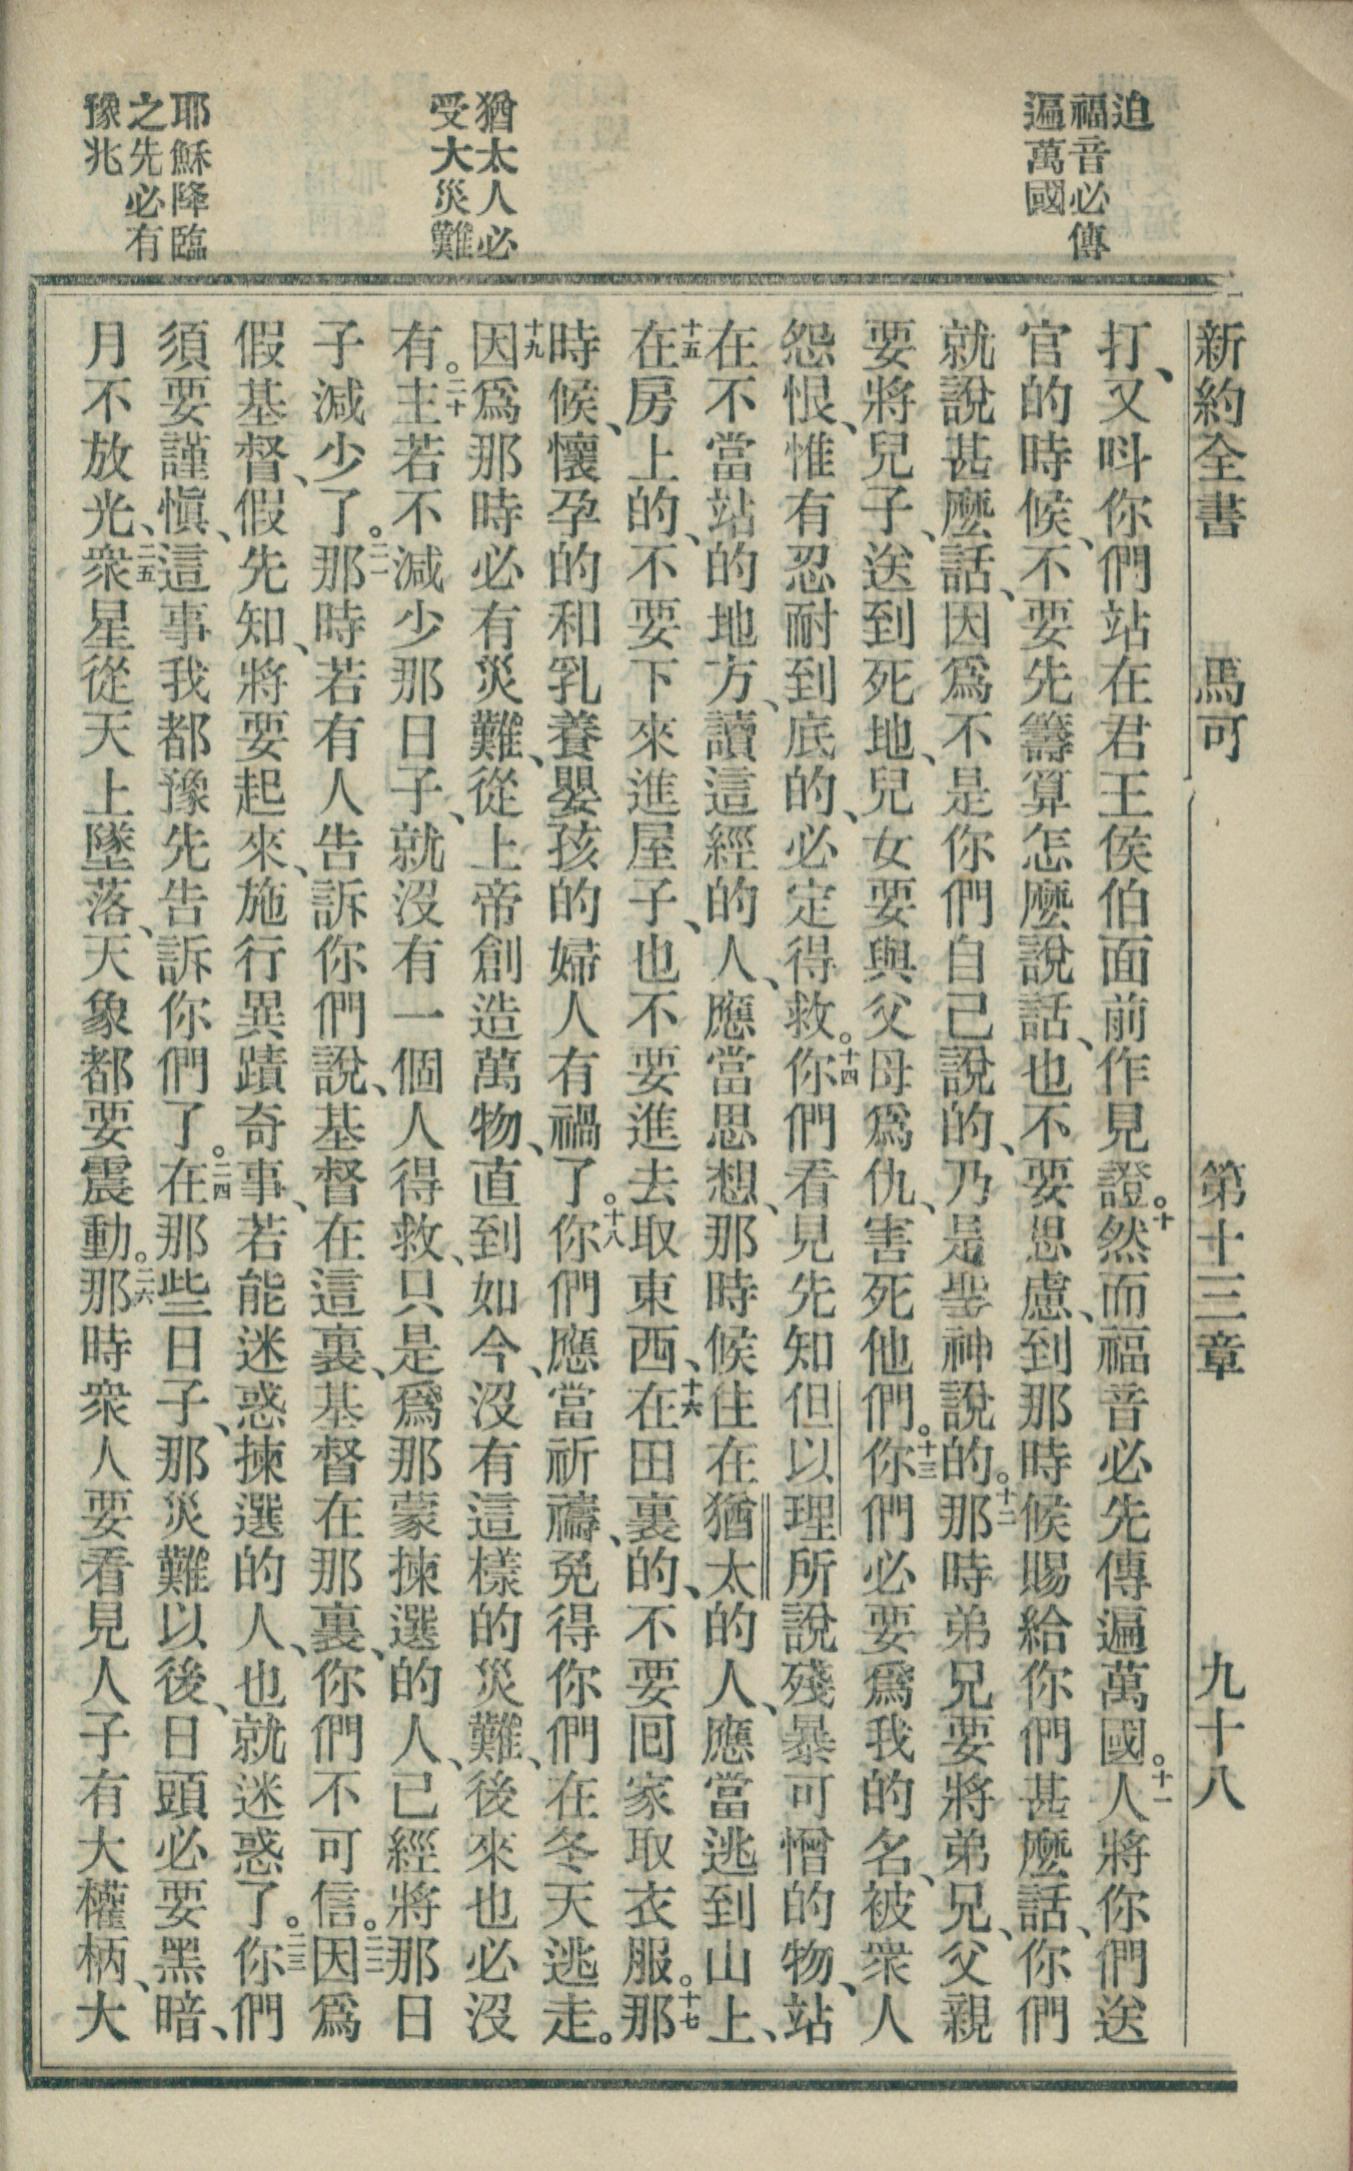 迫
福音必傳
遍萬國
猶太人必
受大災難
耶穌降臨
之先必有
豫兆
新約全書 馬可 第十三章 九十八
打、又呌你們站在君王侯伯面前作見證。十然而福音必先傳遍萬國。十一人將你們送
官的時候、不要先籌算怎麼說話、也不要思慮、到那時候賜給你們甚麼話、你們
就說甚麼話、因爲不是你們自己說的、乃是聖神說的。十二那時弟兄要將弟兄、父親
要將兒子、送到死地、兒女要與父母爲仇、害死他們。十三你們必要爲我的名、被衆人
怨恨、惟有忍耐到底的、必定得救。十四你們看見先知但以理所說殘暴可憎的物、站
在不當站的地方、讀這經的人、應當思想、那時候住在猶太的人、應當逃到山上、
十五在房上的、不要下來進屋子、也不要進去取東西、十六在田裏的、不要囘家取衣服。十七那
時候、懷孕的和乳養嬰孩的婦人有禍了。十八你們應當祈禱、免得你們在冬天逃走。
十九因爲那時必有災難、從上帝創造萬物、直到如今、沒有這樣的災難、後來也必沒
有。二十主若不減少那日子、就沒有一個人得救、只是爲那蒙揀選的人、已經將那日
子減少了。二一那時若有人告訴你們說、基督在這裏、基督在那裏、你們不可信。二二因爲
假基督、假先知、將要起來、施行異蹟奇事、若能迷惑揀選的人、也就迷惑了。二三你們
須要謹愼、這事我都豫先告訴你們了。二四在那些日子、那災難以後、日頭必要黑暗、
月不放光、二五衆星從天上墜落、天象都要震動。二六那時衆人要看見人子有大權柄、大